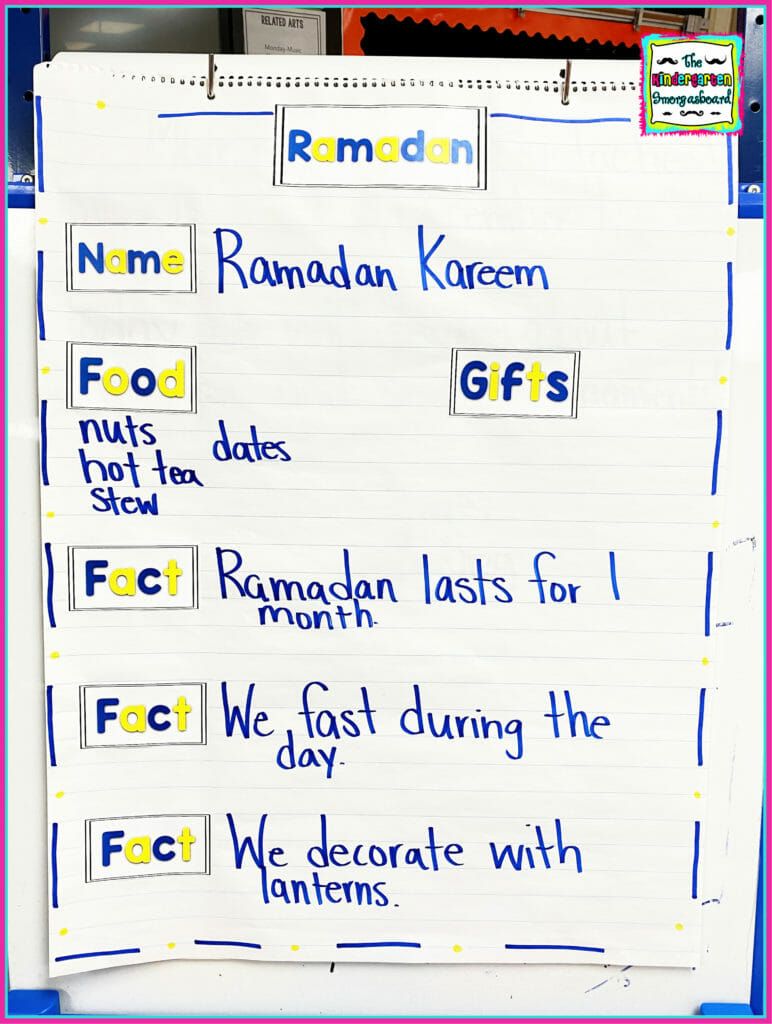 RELATED ARTS
Monday-Music
The
Kindergarten
Smorgasboard
Ramadan
Name Ramadan Kareem
Food Gifts
nuts dates
hot tea
stew
Fact Ramadan lasts for 1
month.
Fact We fast during the
day.
Fact We decorate with
lanterns.